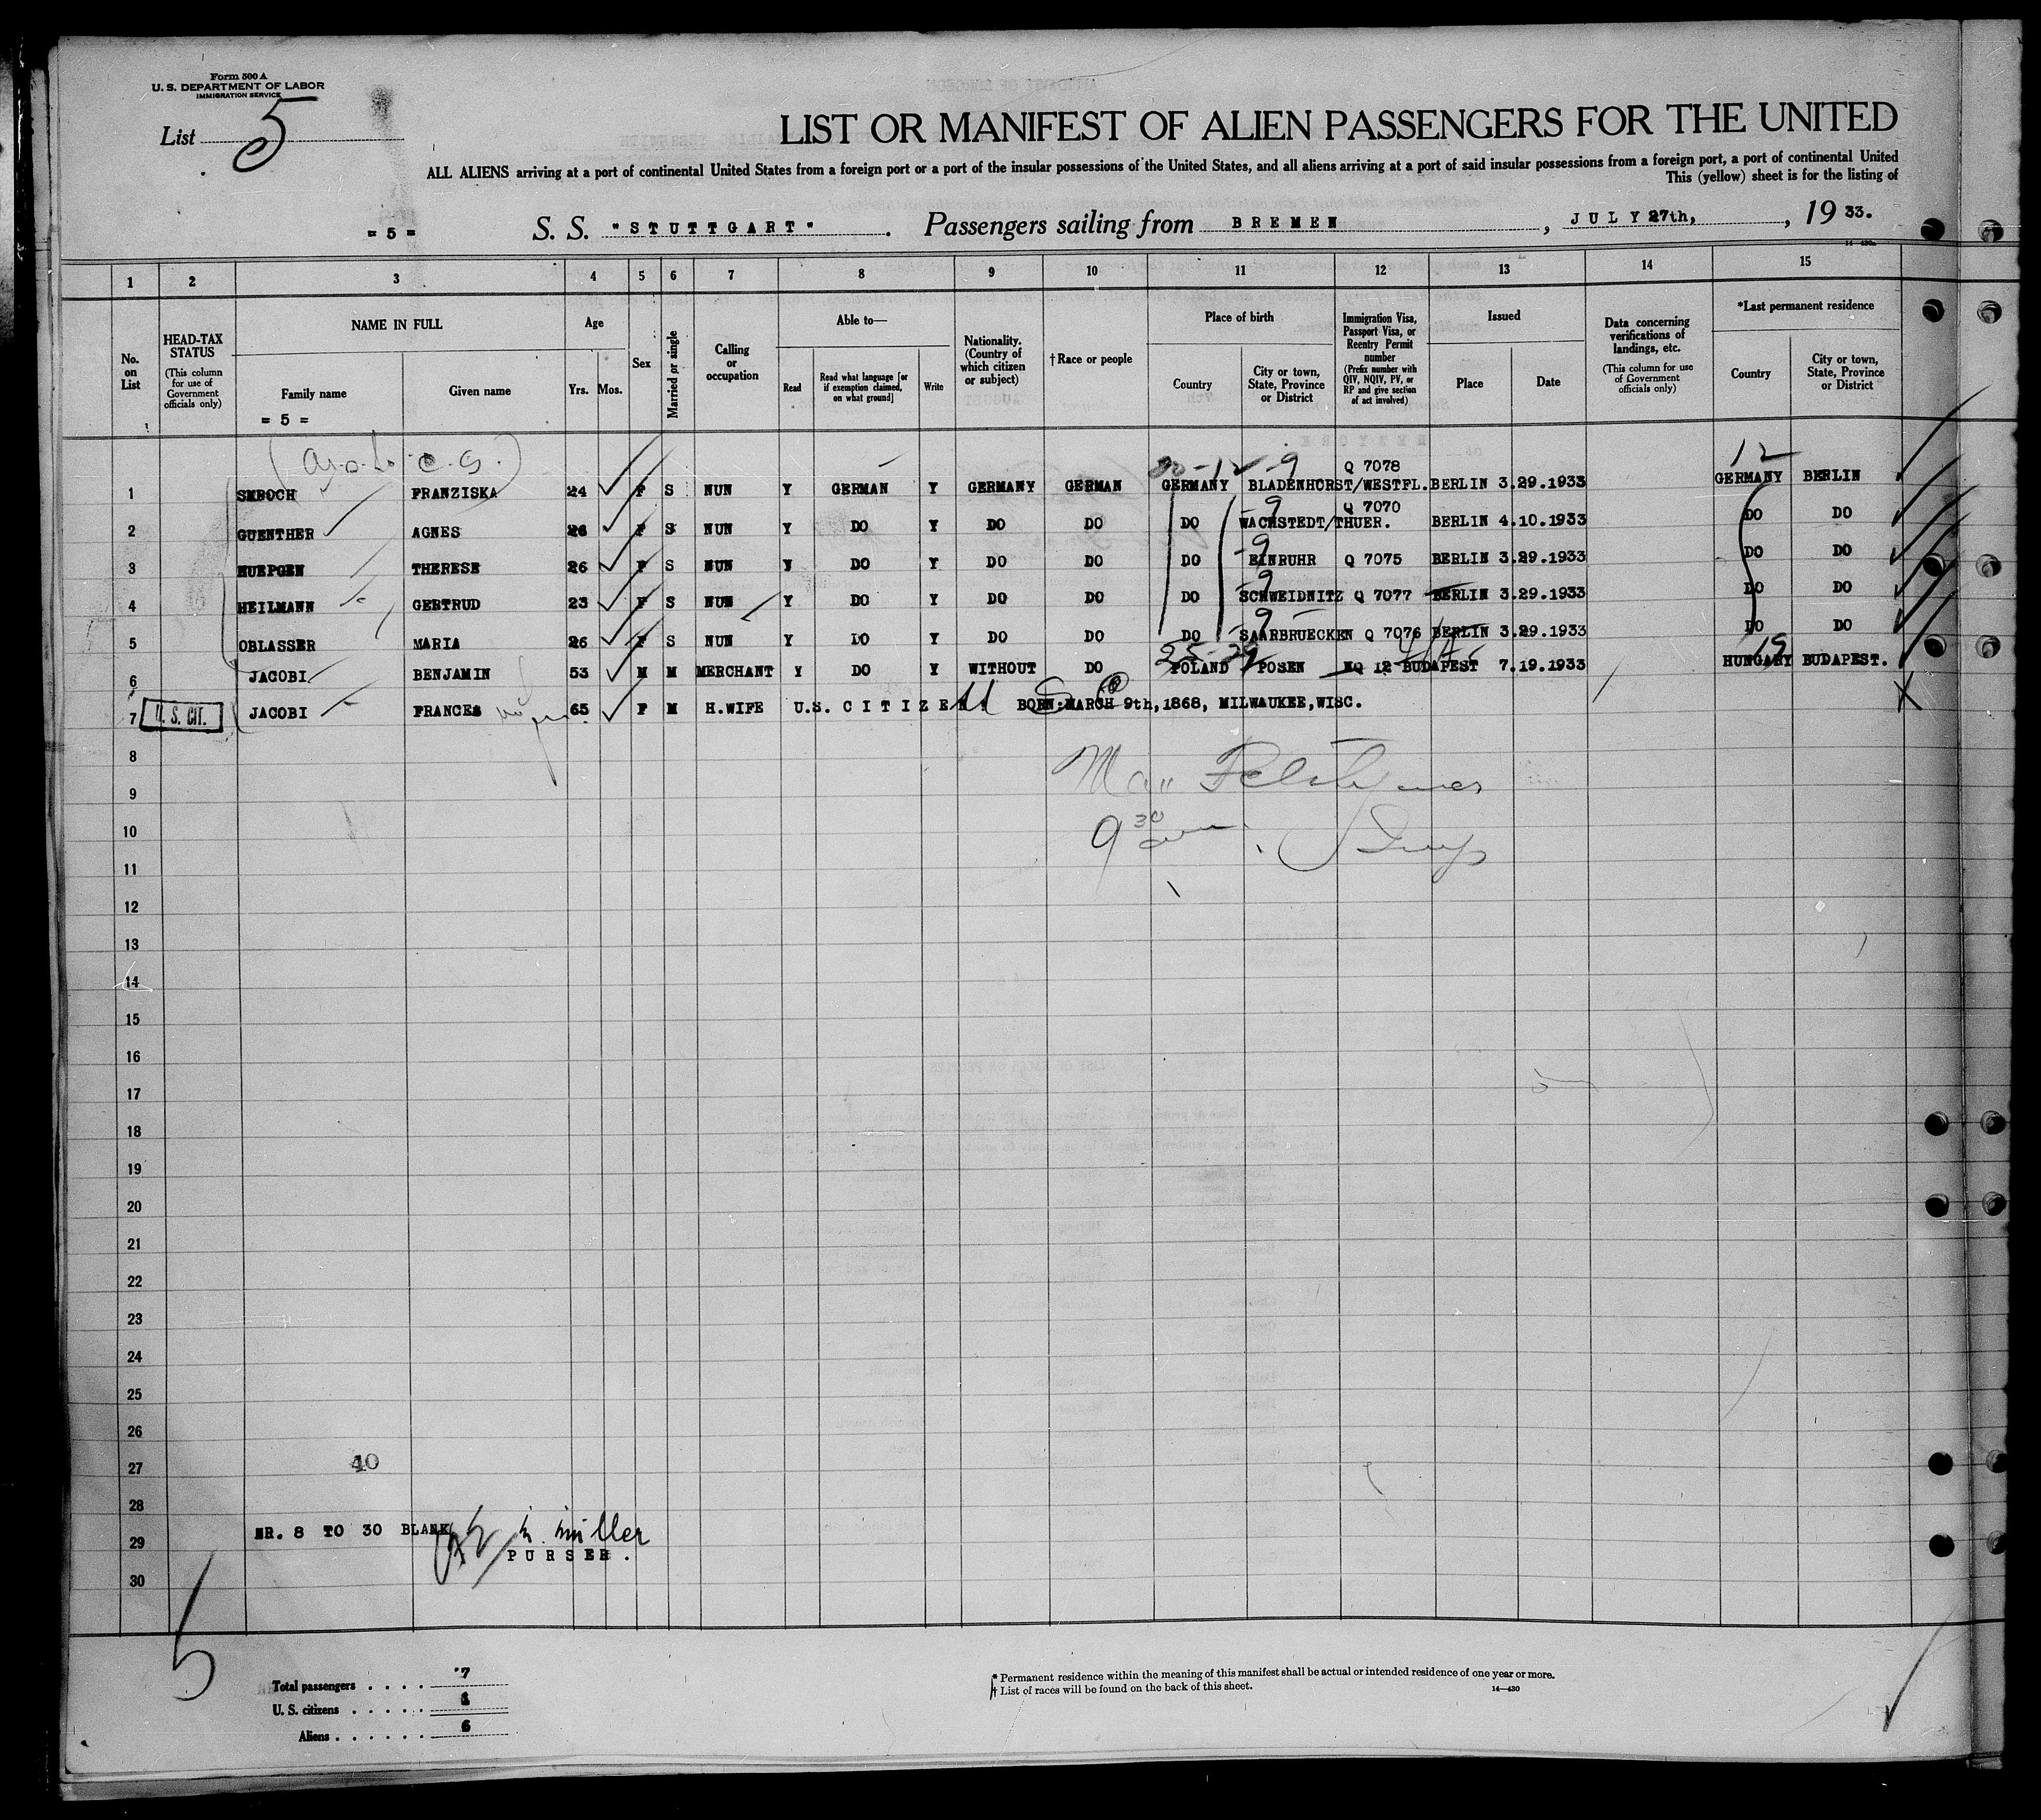 Form 500 A
U. S. DEPARTMENT OF LABOR
IMMIGRATION SERVICE
List 5
LIST OR MANIFEST OF ALIEN PASSENGERS FOR THE UNITED
ALL ALIENS arriving at a port of continental United States from a foreign port or a port of the insular possessions of the United States, and all aliens arriving at a port of said insular possessions from a foreign port, a port of continental United
This (yellow) sheet is for the listing of
= 5 = S. S. "STUTTGART" . Passengers sailing from BREMEN , JULY 27th, , 19 33.
14—430a
1 2 3 4 5 6 7 8 9 10 11 12 13 14 15
No. on List
HEAD-TAX STATUS
(This column for use of Government officials only)
NAME IN FULL
Family name
= 5 =
Given name
Age
Yrs. Mos.
Sex
Married or single
Calling or occupation
Able to—
Read
Read what language [or if exemption claimed, on what ground]
Write
Nationality. (Country of which citizen or subject)
†Race or people
Place of birth
Country
City or town, State, Province or District
Immigration Visa, Passport Visa, or Reentry Permit number
(Prefix number with QIV, NQIV, PV, or RP and give section of act involved)
Issued
Place
Date
Data concerning verifications of landings, etc.
(This column for use of Government officials only)
*Last permanent residence
Country
City or town, State, Province or District
20-12 -9 Q 7078 12
1 SKROCH FRANZISKA 24 F S NUN Y GERMAN Y GERMANY GERMAN GERMANY BLADENHORST/WESTFL. BERLIN 3.29.1933 GERMANY BERLIN
-9 Q 7070
2 GUENTHER AGNES 26 F S NUN Y DO Y DO DO DO WACHSTEDT/THUER. BERLIN 4.10.1933 DO DO
-9
3 HUEPGEN THERESE 26 F S NUN Y DO Y DO DO DO EINRUHR Q 7075 BERLIN 3.29.1933 DO DO
-9
4 HEILMANN GERTRUD 23 F S NUN Y DO Y DO DO DO SCHWEIDNITZ Q 7077 BERLIN 3.29.1933 DO DO
-9
5 OBLASSER MARIA 26 F S NUN Y DO Y DO DO DO SAARBRUECKEN Q 7076 BERLIN 3.29.1933 DO DO
19
6 JACOBI BENJAMIN 53 M M MERCHANT Y DO Y WITHOUT DO POLAND POSEN NQ 12 BUDAPEST 7.19.1933 HUNGARY BUDAPEST.
7 U. S. CIT. JACOBI FRANCES 65 F M H.WIFE U.S. CITIZEN U S C BORN:MARCH 9th,1868, MILWAUKEE,WISC.
8
9
10
9 30
11
12
13
14
15
16
17
18
19
20
21
22
23
24
25
26
27
40
28
NR. 8 TO 30 BLANK
29
PURSER.
30
5
Total passengers . . . . 7
U. S. citizens . . . . . 1
Aliens . . . . . . 6
* Permanent residence within the meaning of this manifest shall be actual or intended residence of one year or more.
† List of races will be found on the back of this sheet.
14—430